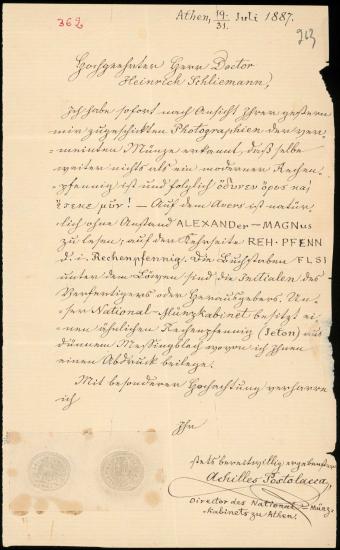 362
Athen, 19./31. Juli 1887.
263
Hochgeehrter Herr Doctor
Heinrich Schliemann,
Ich habe sofort nach Ansicht Ihrer gestern
mir zugeschickten Photographien der ver-
meinten Münze erkannt, daß selbe
weiter nichts als ein moderner Rechen-
pfennig ist und folglich ὤδινεν ὄρος καὶ
ἔτεκε μῦν! — Auf dem Avers ist natür-
lich ohne Anstand ALEXANDer — MAGNus
zu lesen; auf der Kehrseite REH-PFENN
d. i. Rechenpfennig. Die Buchstaben FLSI
unter dem Löwen sind die Initialen des
Verfertigers oder Herausgebers. Un-
ser National-Münzkabinet besitzt ei-
nen ähnlichen Rechenpfennig (Jeton) aus
dünnem Messingblech wovon ich Ihnen
einen Abdruck beilege.
Mit besonderer Hochachtung verharre
ich
Ihr
stets bereitwillig ergebenster
Achilles Postolacca,
Director des National-Münz-
kabinets zu Athen.